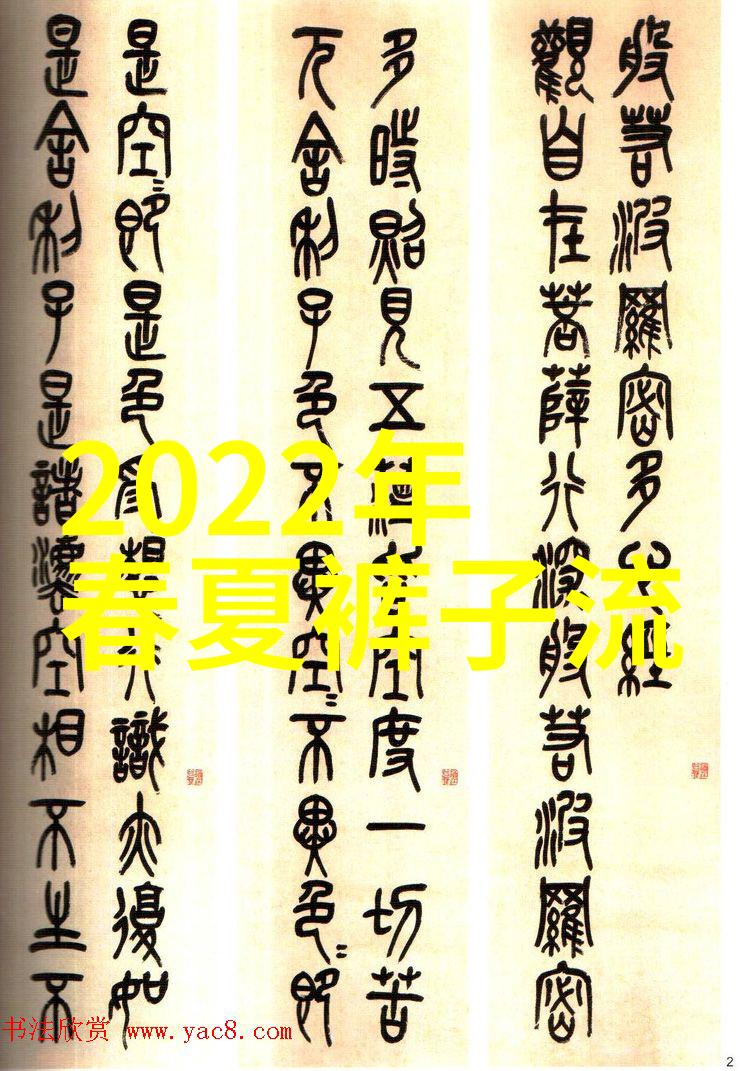 般若波羅密多心經
觀自在菩薩行深般若波羅密
多時照見五蘊皆空度一切苦
厄舍利子色不異空〻不異色〻即
是空〻即是色受想行識亦復如
是舍利子是諸法空相不生不
2022年
春夏裤子流
书法欣赏 www.yac8.com
2